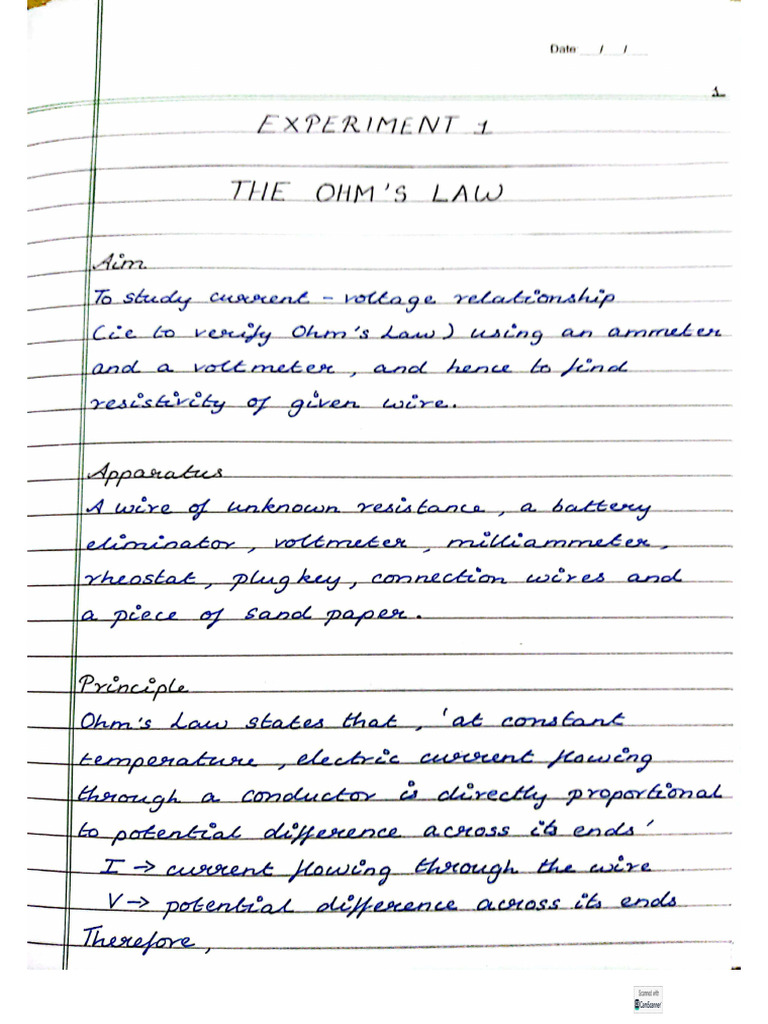 Date / /
1
EXPERIMENT 1
THE OHM'S LAW
Aim
To study current - voltage relationship
(ie to verify Ohm's Law) using an ammeter
and a voltmeter, and hence to find
resistivity of given wire.
Apparatus
A wire of unknown resistance, a battery
eliminator, voltmeter, milliammeter,
rheostat, plug key, connection wires and
a piece of sand paper.
Principle
Ohm's Law states that, 'at constant
temperature, electric current flowing
through a conductor is directly proportional
to potential difference across its ends'
I → current flowing through the wire
V → potential difference across its ends
Therefore,
Scanned with
CamScanner